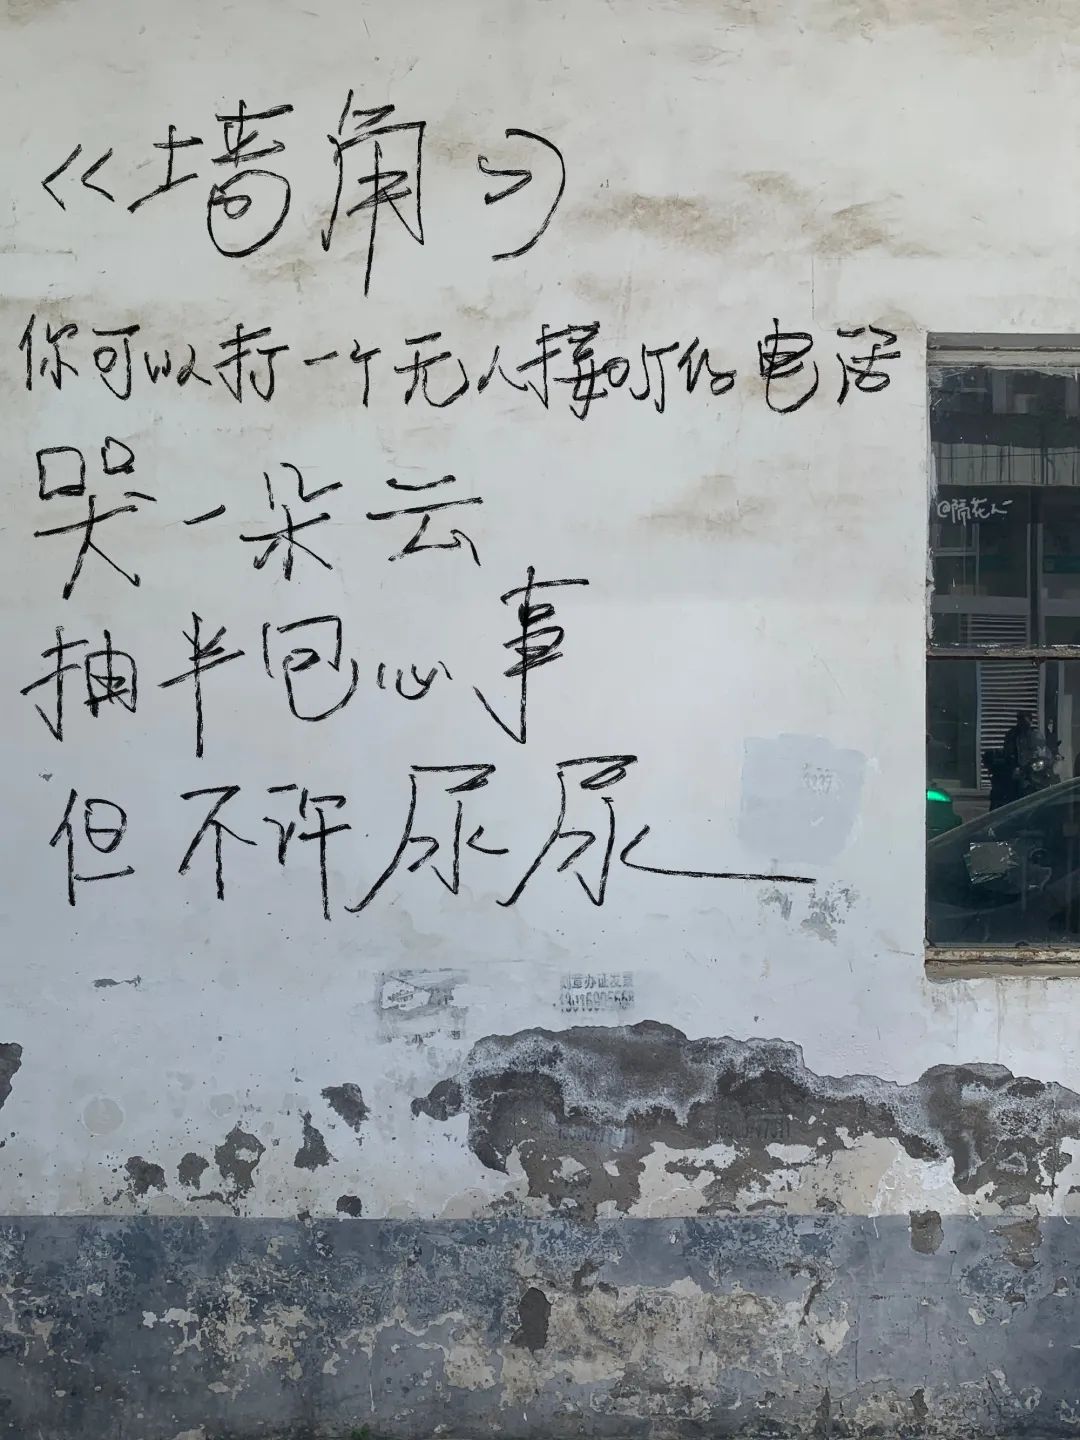 《墙角》
你可以打一个无人接听的电话
哭一朵云
抽半包心事
但不许尿尿
@隔花人
刻章办证发票